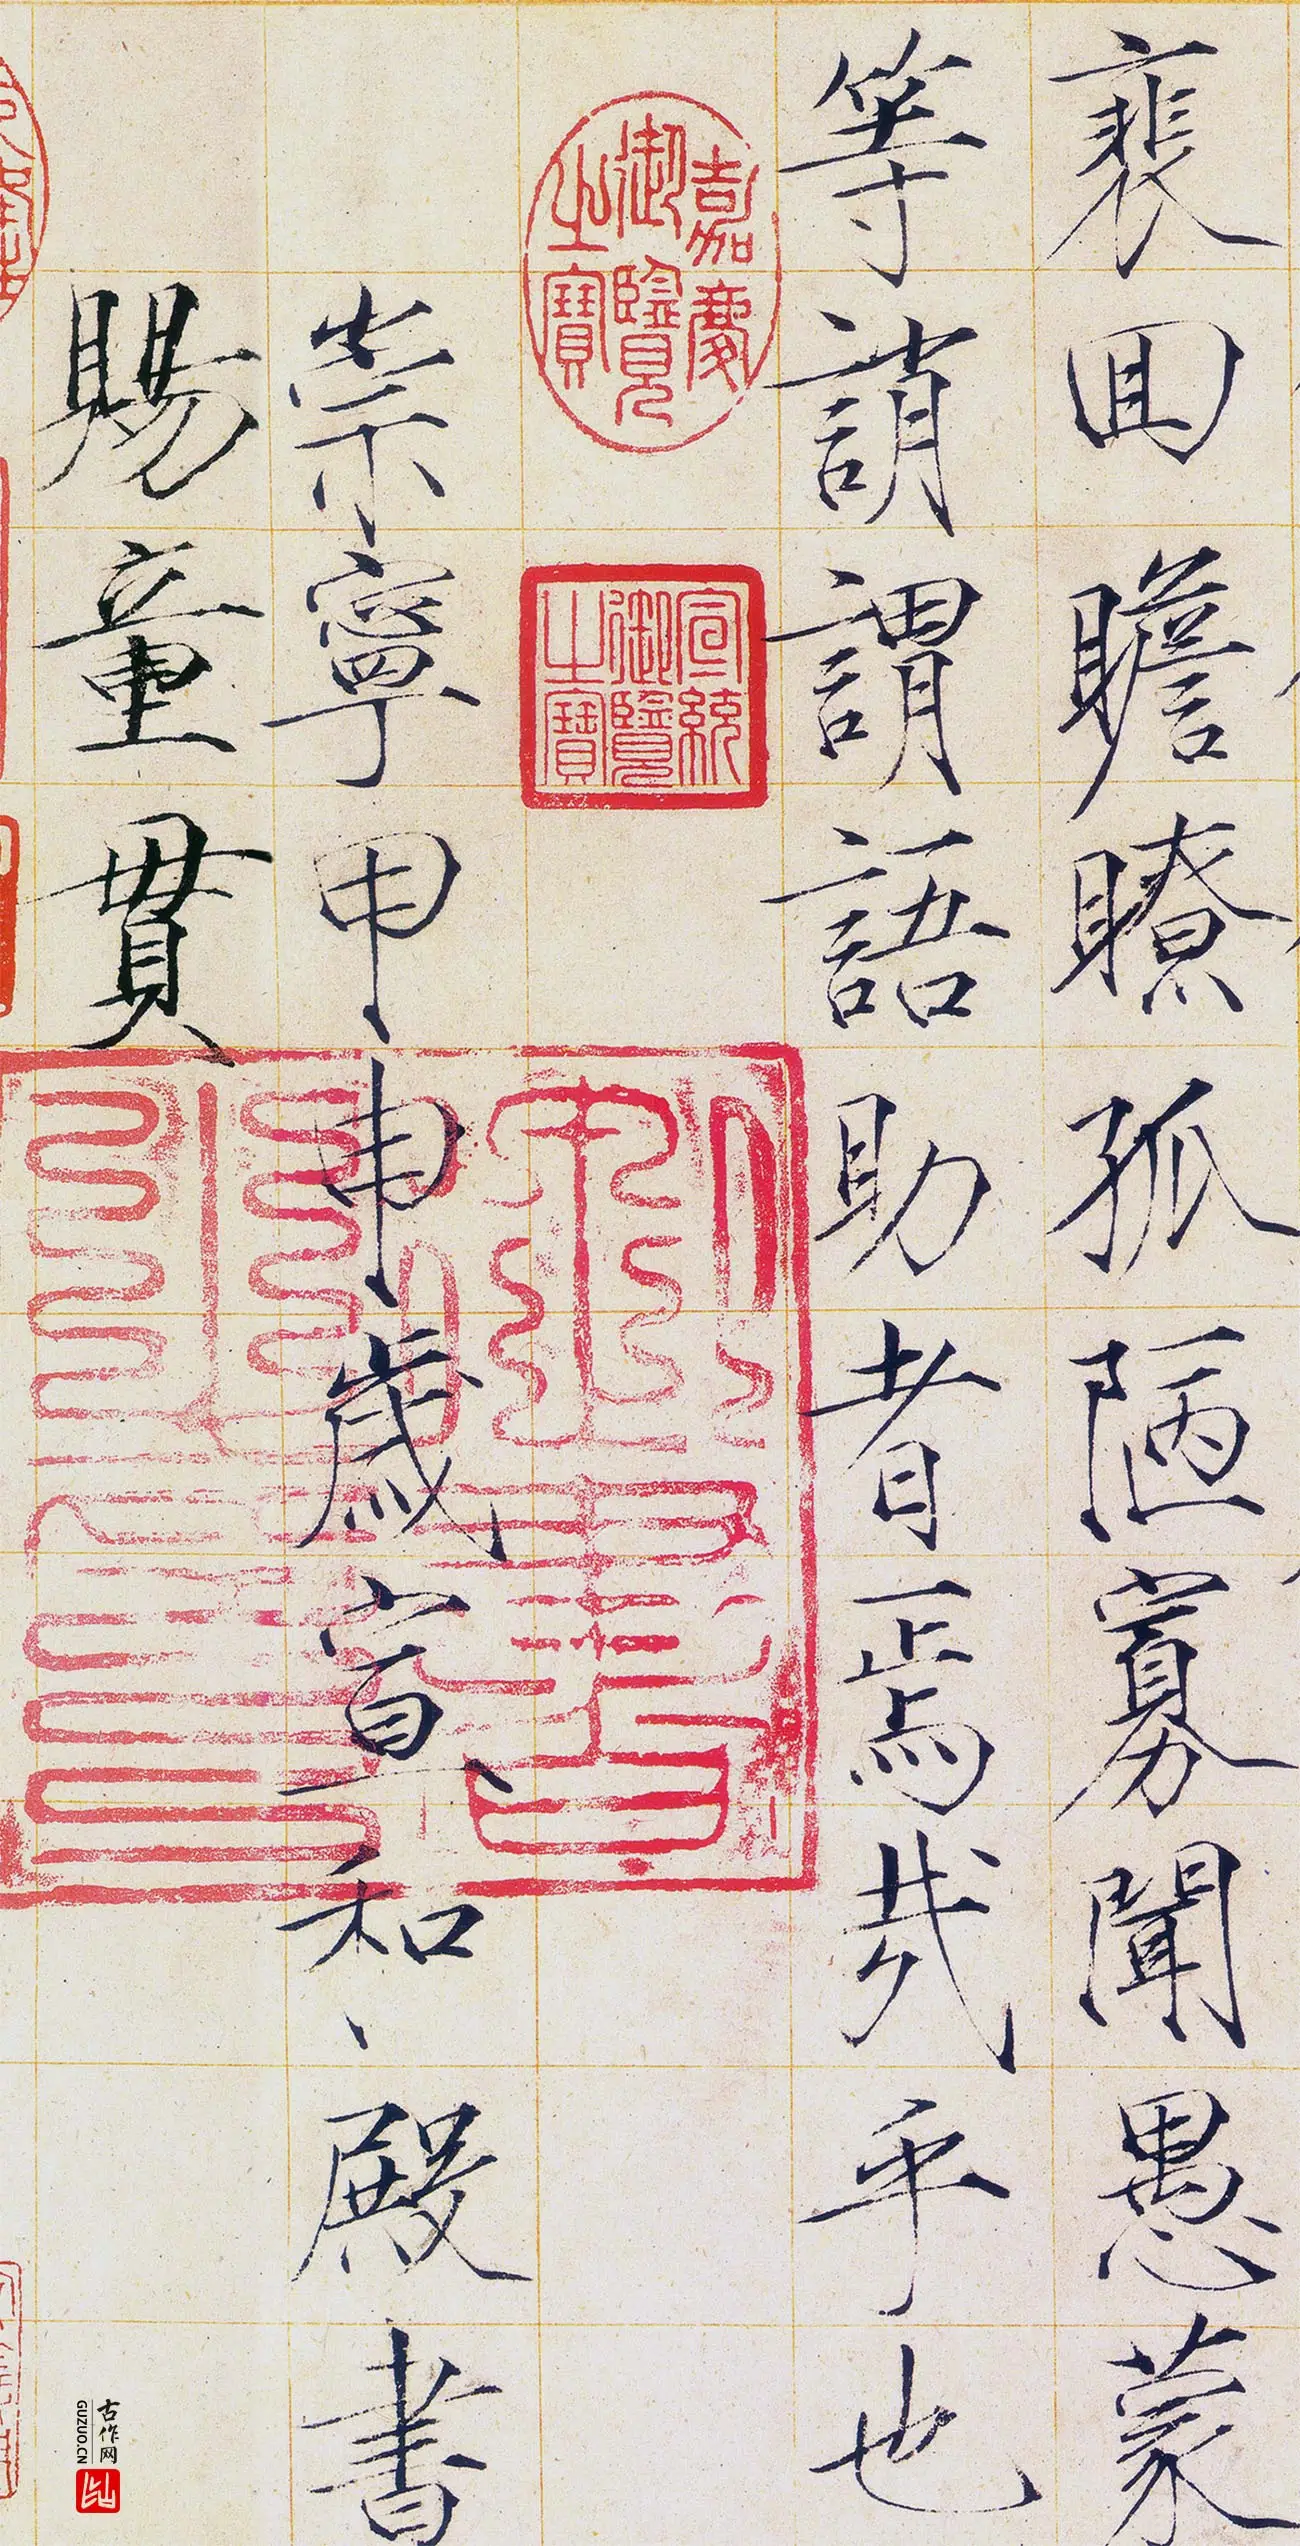 裵囬瞻瞭孤陋寡聞愚蒙
等誚謂語助者焉哉乎也
嘉慶
御覽
之寶
宣統
御覽
之寶
崇寧甲申歲宣和殿書
賜童貫
古作网
GUZUO.CN